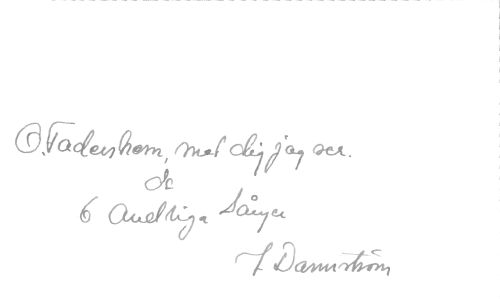 O. Fadershem, mot dig jag ser.
&
6 Andliga Sånger
J Dannström